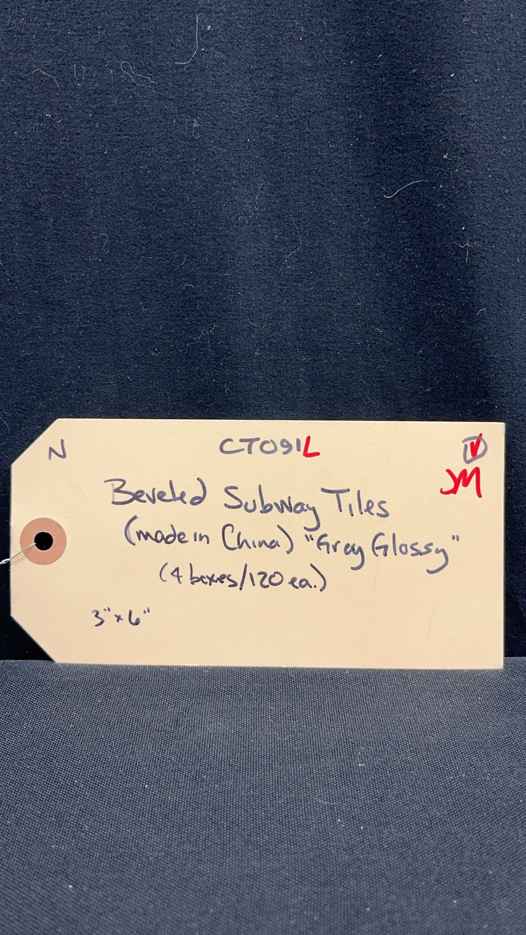 N CTO91L
JM
Beveled Subway Tiles
(made in China) "Grey Glossy"
(4 boxes/120 ea.)
3"x6"